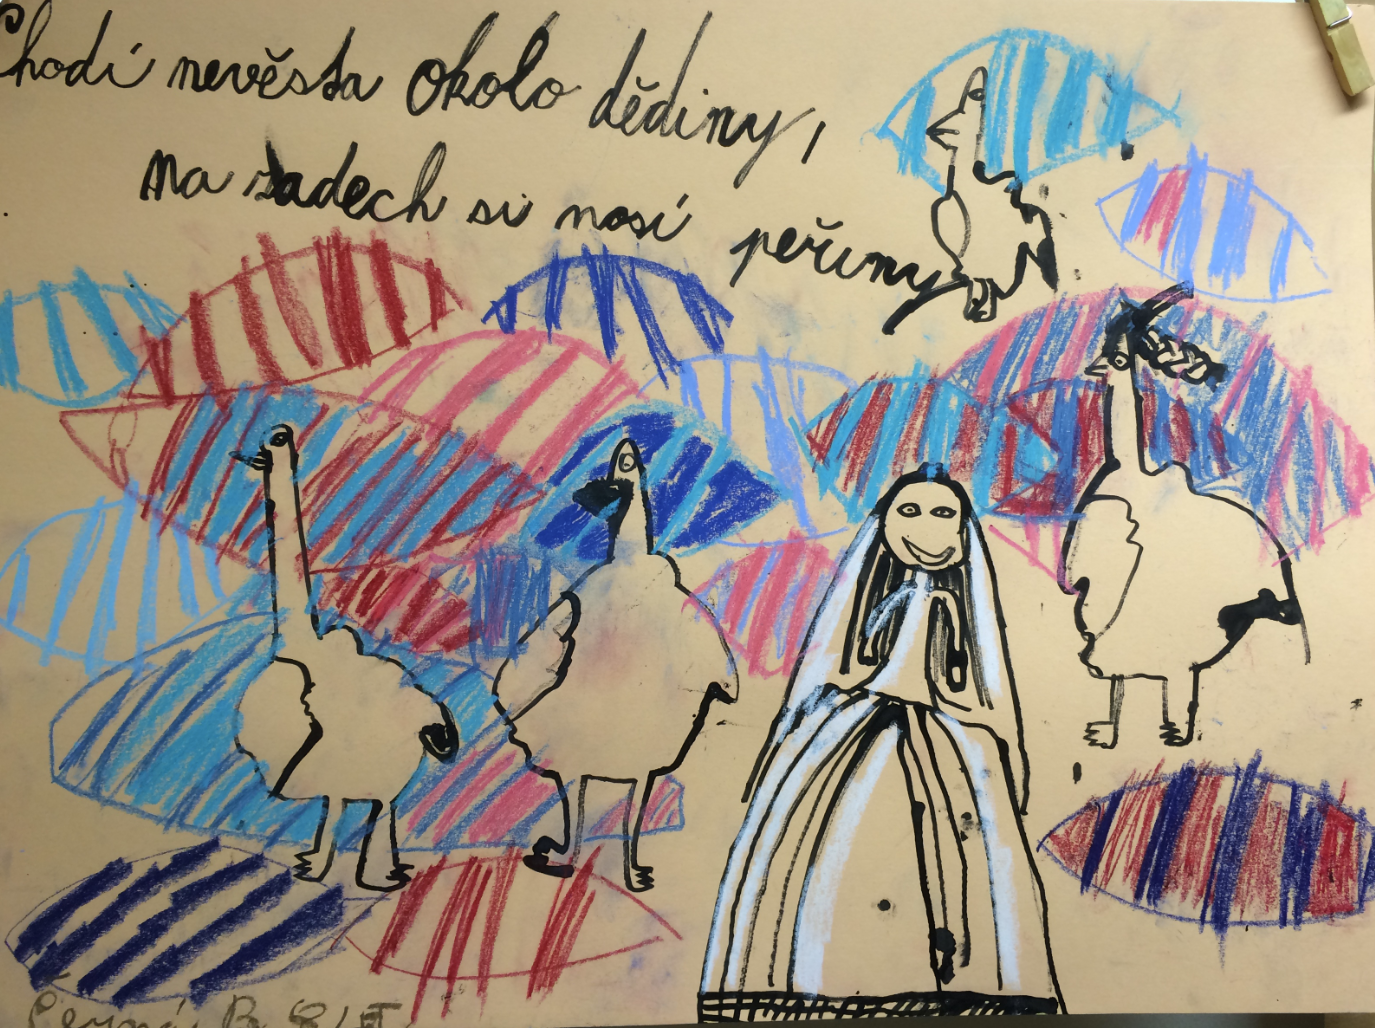 Chodí nevěsta okolo dědiny,
na zadech si nosí peřiny